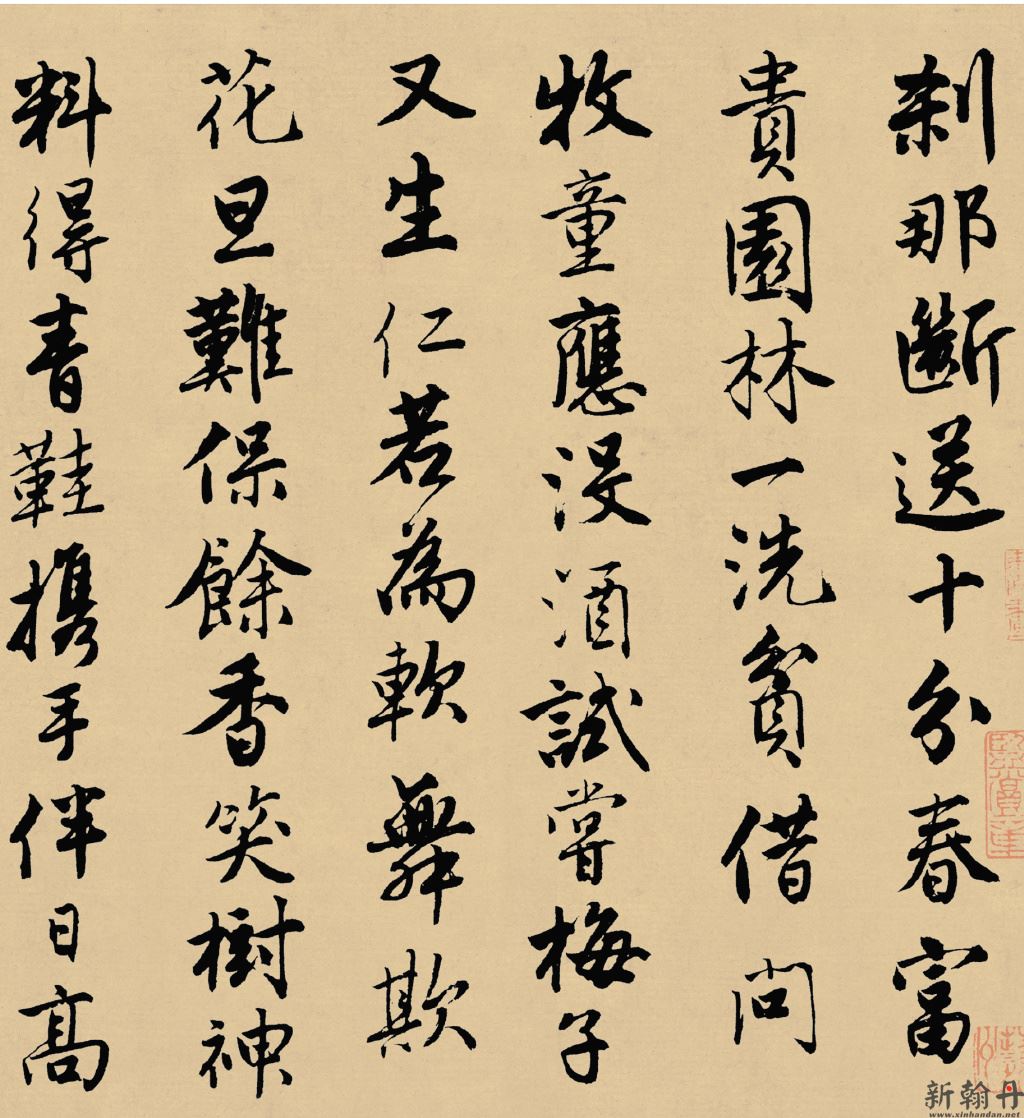 刹那斷送十分春富
貴園林一洗貧借問
牧童應沒酒試嘗梅子
又生仁若為軟舞欺
花旦難保餘香笑樹神
料得青鞋攜手伴日高
新翰丹
www.xinhandan.net